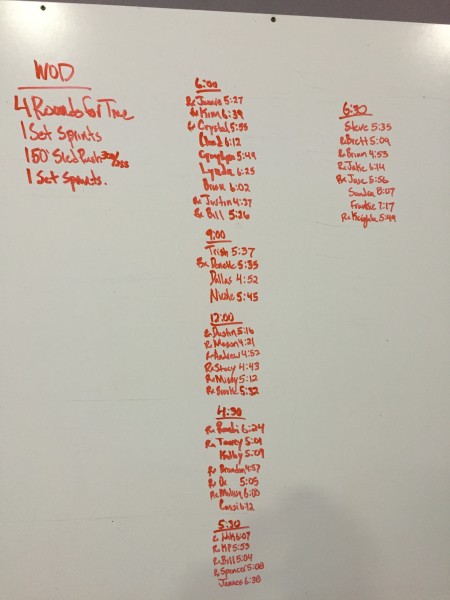 WOD
4 Rounds for Time
1 Set Sprints
150' Sled Push
1 Set Sprints.
6:00
Rx James 5:27
Rx Kim 6:39
Rx Crystal 5:55
Chad 6:12
5:49
Lynda 6:25
6:02
Rx Justin 4:37
Rx Bill 5:26
9:00
Trish 5:37
Rx Danielle 5:35
Dallas 4:52
Nicole 5:45
12:00
Rx Dustin 5:16
Rx Mason 4:21
Rx Andrew 4:52
Rx Stacy 4:43
Rx Misty 5:12
Rx Brooke 5:32
4:30
Rx 6:24
Rx 5:01
Kolby 5:09
Rx Brandon 4:57
Rx 5:05
Rx Melissa 6:00
6:12
5:30
Rx 6:07
Rx KP 5:53
Rx Bill 5:04
Rx Spencer 5:08
James 6:38
6:30
Steve 5:35
Rx Brett 5:09
Rx Brian 4:53
Rx Jake 6:14
Rx Jose 5:56
Sandra 8:07
Frankie 7:17
Rx 5:49